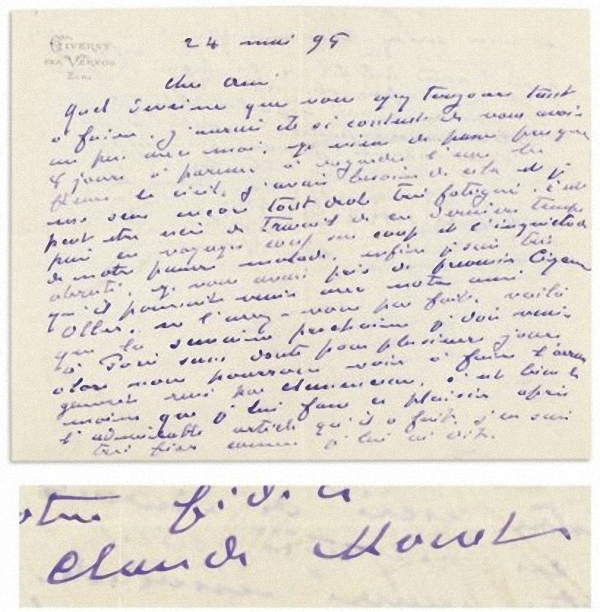 GIVERNY
PAR VERNON
EURE
24 mai 95
cher ami
quel que vous ayez toujours tant
à faire. j'aurais été si content de vous avoir
un peu avec moi. je viens de passer presque
8 jours à à regarder l'eau, les
fleurs le ciel, j'avais besoin de cela et je
me sens encore tout drôle très fatigué. c'est
peut être mon de travail de ces derniers temps
puis ces voyages coup sur coup et l'inquiétude
de notre pauvre malade, enfin je suis très
abruti. je vous avais prié de prévenir Cazeau
qu'il pourrait venir avec notre ami
Oller, ne l'avez-vous pas fait. voilà
que la semaine prochaine je dois venir
à Paris sans doute pour plusieurs jours
alors nous pourrons voir à faire
par clemenceau, c'est bien le
moins que je lui fasse ce plaisir après
l'admirable article qu'il a fait. j'en suis
très fier comme je lui ai dit.
votre fidèle
Claude Monet